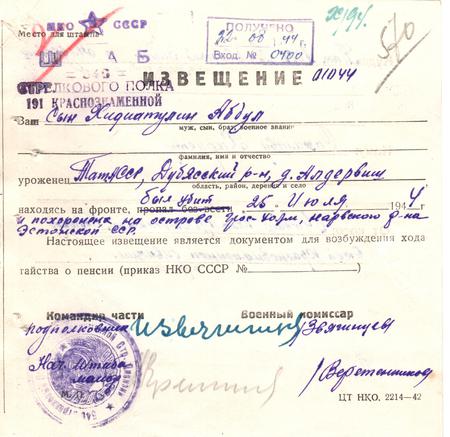 НКО СССР
Место для штампа
ШТАБ
546
СТРЕЛКОВОГО ПОЛКА
191 КРАСНОЗНАМЕННОЙ
ПОЛУЧЕНО
Вход. № 0400
ИЗВЕЩЕНИЕ 01044
Ваш Сын Хидиатулин Абдул
муж, сын, брат, военное звание
фамилия, имя и отчество
уроженец ТатАССР, Дубьясский р-н, д. Алдервиш
область, район, деревня и село
был убит
находясь на фронте, пропал без вести 25 Июля 1944
и похоронен на острове Гросхольм, нарвского р-на
Эстонской ССР.
Настоящее извещение является документом для возбуждения хода
тайства о пенсии (приказ НКО СССР №
Командир части Военный комиссар
подполковник Звягинцев
Нач. Штаба
майор Веретенников
ЦТ НКО. 2214—42